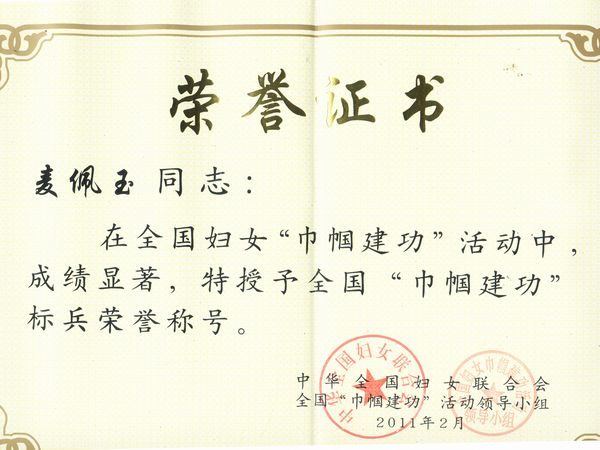 荣誉证书
麦佩玉 同志：
在全国妇女“巾帼建功”活动中，
成绩显著，特授予全国“巾帼建功”
标兵荣誉称号。
中华全国妇女联合会
全国“巾帼建功”活动领导小组
2011年2月
中华全国妇女联合会
领导小组